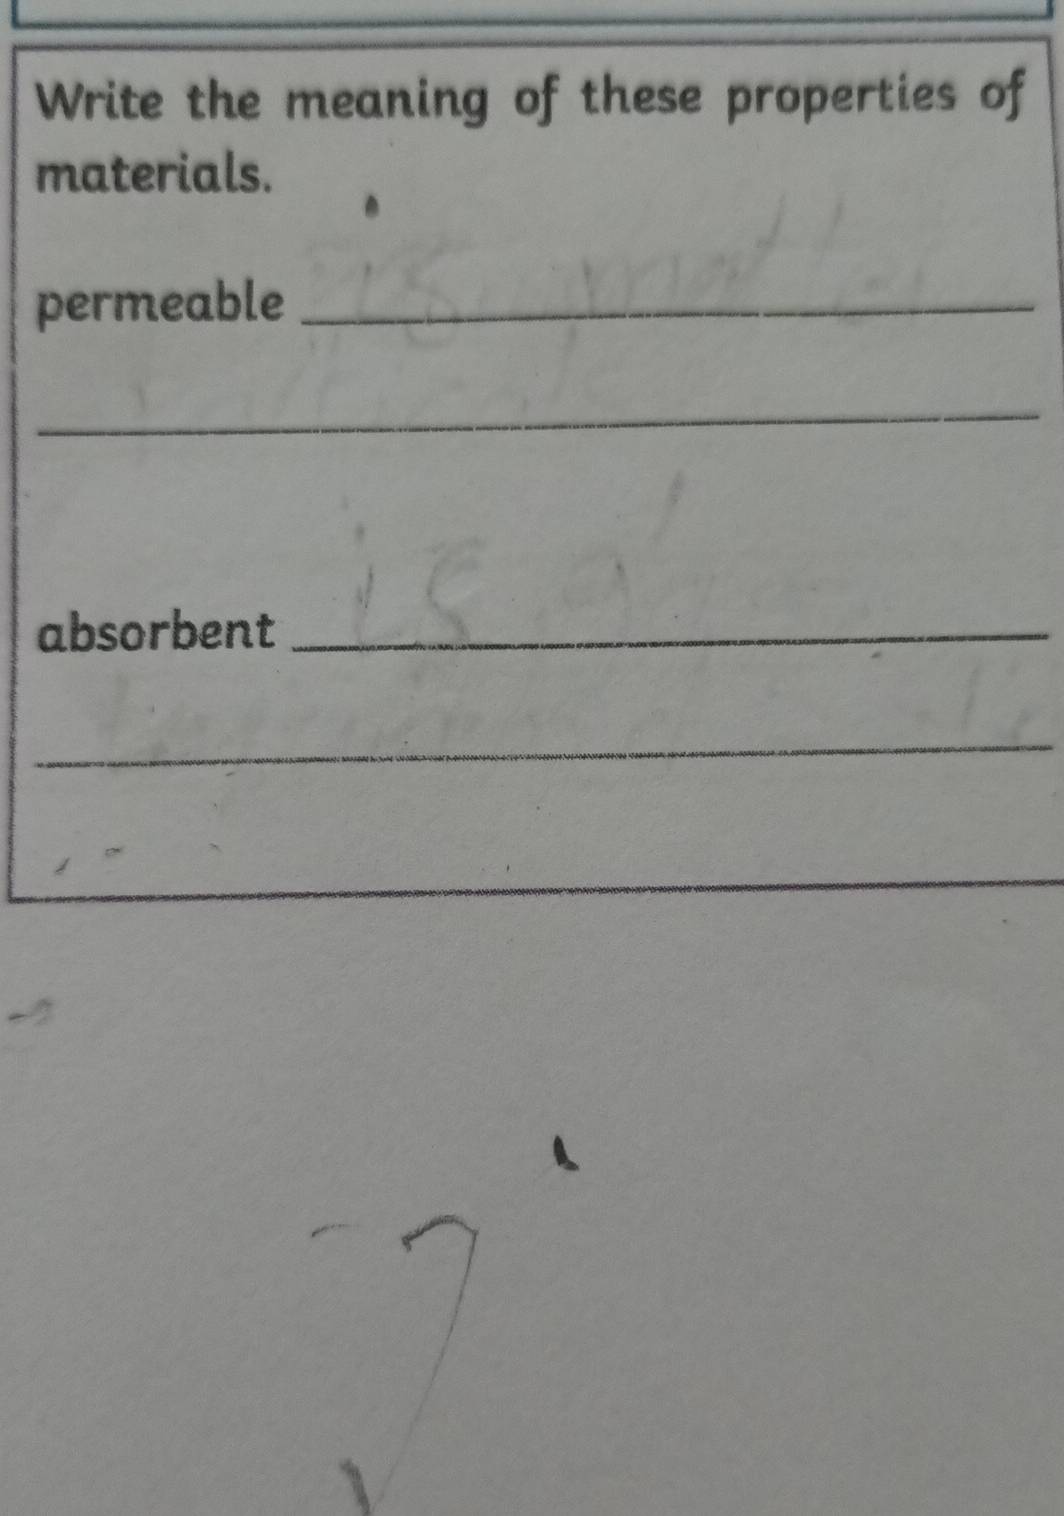 Write the meaning of these properties of
materials.
permeable is
absorbent is a